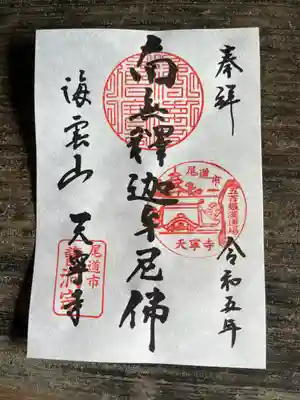 奉拝
令和五年
南無釋迦牟尼佛
海雲山 天寧寺
尾道市
五百羅漢霊場
天寧寺
尾道市